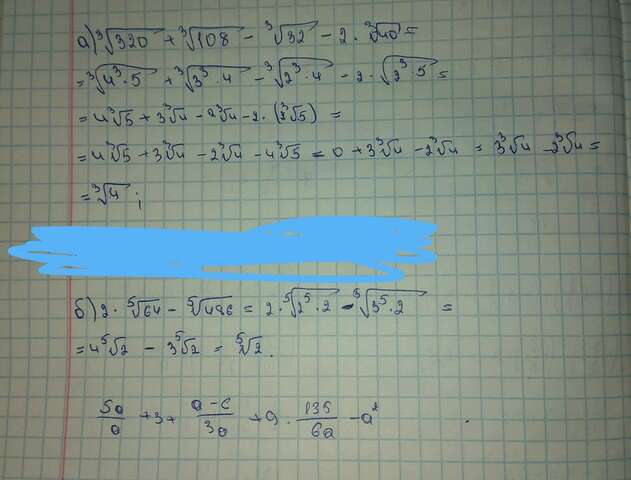 а) ∛320 + ∛108 - ∛32 - 2·∛40 =
= ∛(4³·5) + ∛(3³·4) - ∛(2³·4) - 2·√(2³·5) =
= 4∛5 + 3∛4 - 2∛4 - 2·(2∛5) =
= 4∛5 + 3∛4 - 2∛4 - 4∛5 = 0 + 3∛4 - 2∛4 = 3∛4 - 2∛4 =
= ∛4 ;
б) 2·⁵√64 - ⁵√486 = 2·⁵√(2⁵·2) - ⁵√(3⁵·2) =
= 4⁵√2 - 3⁵√2 = ⁵√2.
5a/a + 3 + (a-c)/3a + 9 · 135/6a - a²